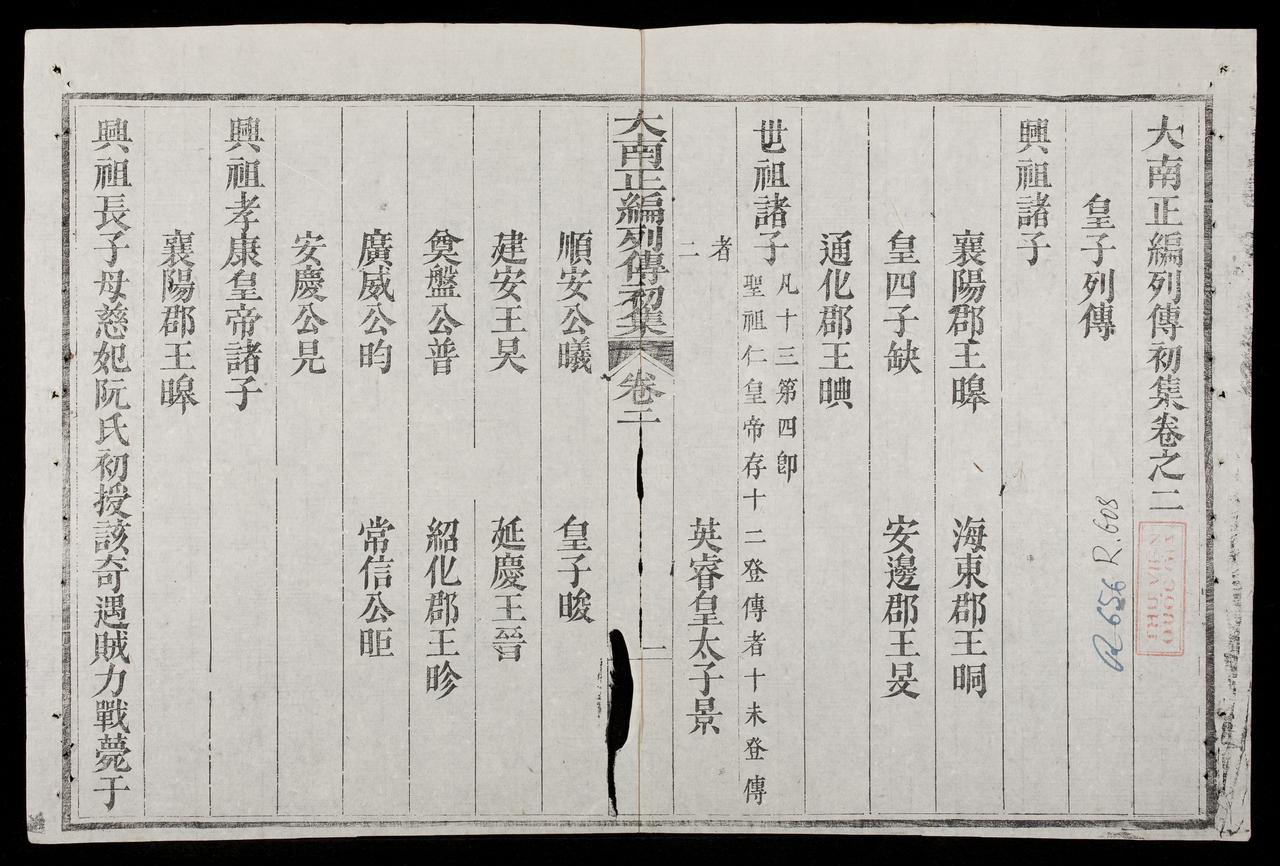 大南正編列傳初集卷之二
皇子列傳
興祖諸子
襄陽郡王暤 海東郡王晍
皇四子缺 安邊郡王旻
通化郡王晪
世祖諸子 凡十三第四卽
聖祖仁皇帝存十二登傳者十未登傳
者二
英睿皇太子景
大南正編列傳初集 卷二 一
順安公曦 皇子晙
建安王旲 延慶王晉
奠盤公普 紹化郡王昣
廣威公昀 常信公昛
安慶公㫕
興祖孝康皇帝諸子
襄陽郡王暤
興祖長子母慈妃阮氏初授該奇遇賊力戰薨于
R.656
R.608
THƯ VIỆN
QUỐC GIA